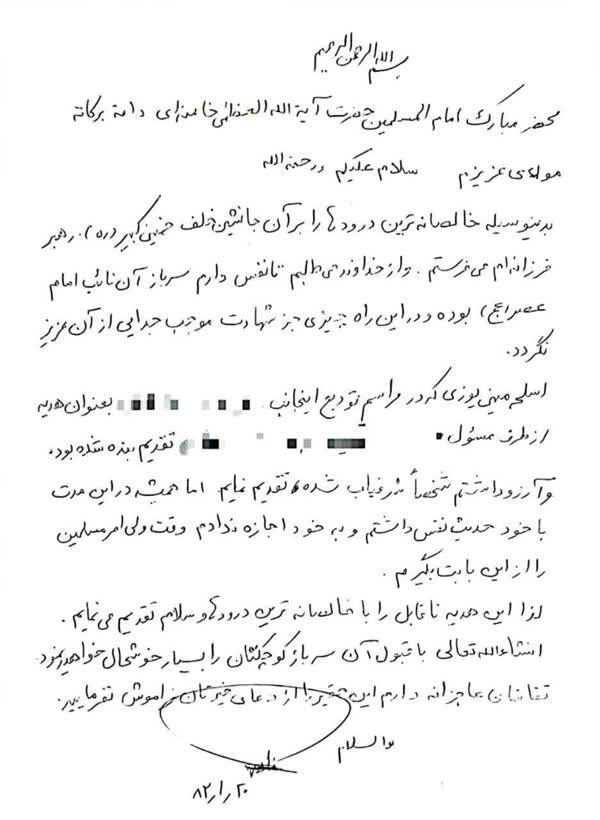 بسم الله الرحمن الرحیم
محضر مبارک امام المسلمین حضرت آیة الله العظمی خامنه‌ای دامة برکاته
مولای عزیزم سلام علیکم ورحمة الله
بدینوسیله خالصانه ترین درودها را بر آن جانشین خلف خمینی کبیر (ره)، رهبر
فرزانه ام می فرستم. و از خداوند می طلبم تا نفس دارم سرباز آن نائب امام
عصر (عج) بوده و در این راه چیزی جز شهادت موجب جدایی از آن عزیز
نگردد.
اسلحه مینی یوزی که در مراسم تودیع اینجانب بعنوان هدیه
از طرف مسئول تقدیم بنده شده بود،
و آرزو داشتم شخصاً شرفیاب شده، تقدیم نمایم. اما همیشه در این مدت
با خود حدیث نفس داشتم و به خود اجازه ندادم وقت ولی امر مسلمین
را از این بابت بگیرم.
لذا این هدیه ناقابل را با خالصانه ترین درودها و سلام تقدیم می نمایم.
انشاءالله تعالی با قبول آن سرباز کوچکتان را بسیار خوشحال خواهید نمود.
تقاضای عاجزانه دارم این حقیر را از دعای خیرتان فراموش نفرمایید.
والسلام
۲۰ / ۱ / ۸۲